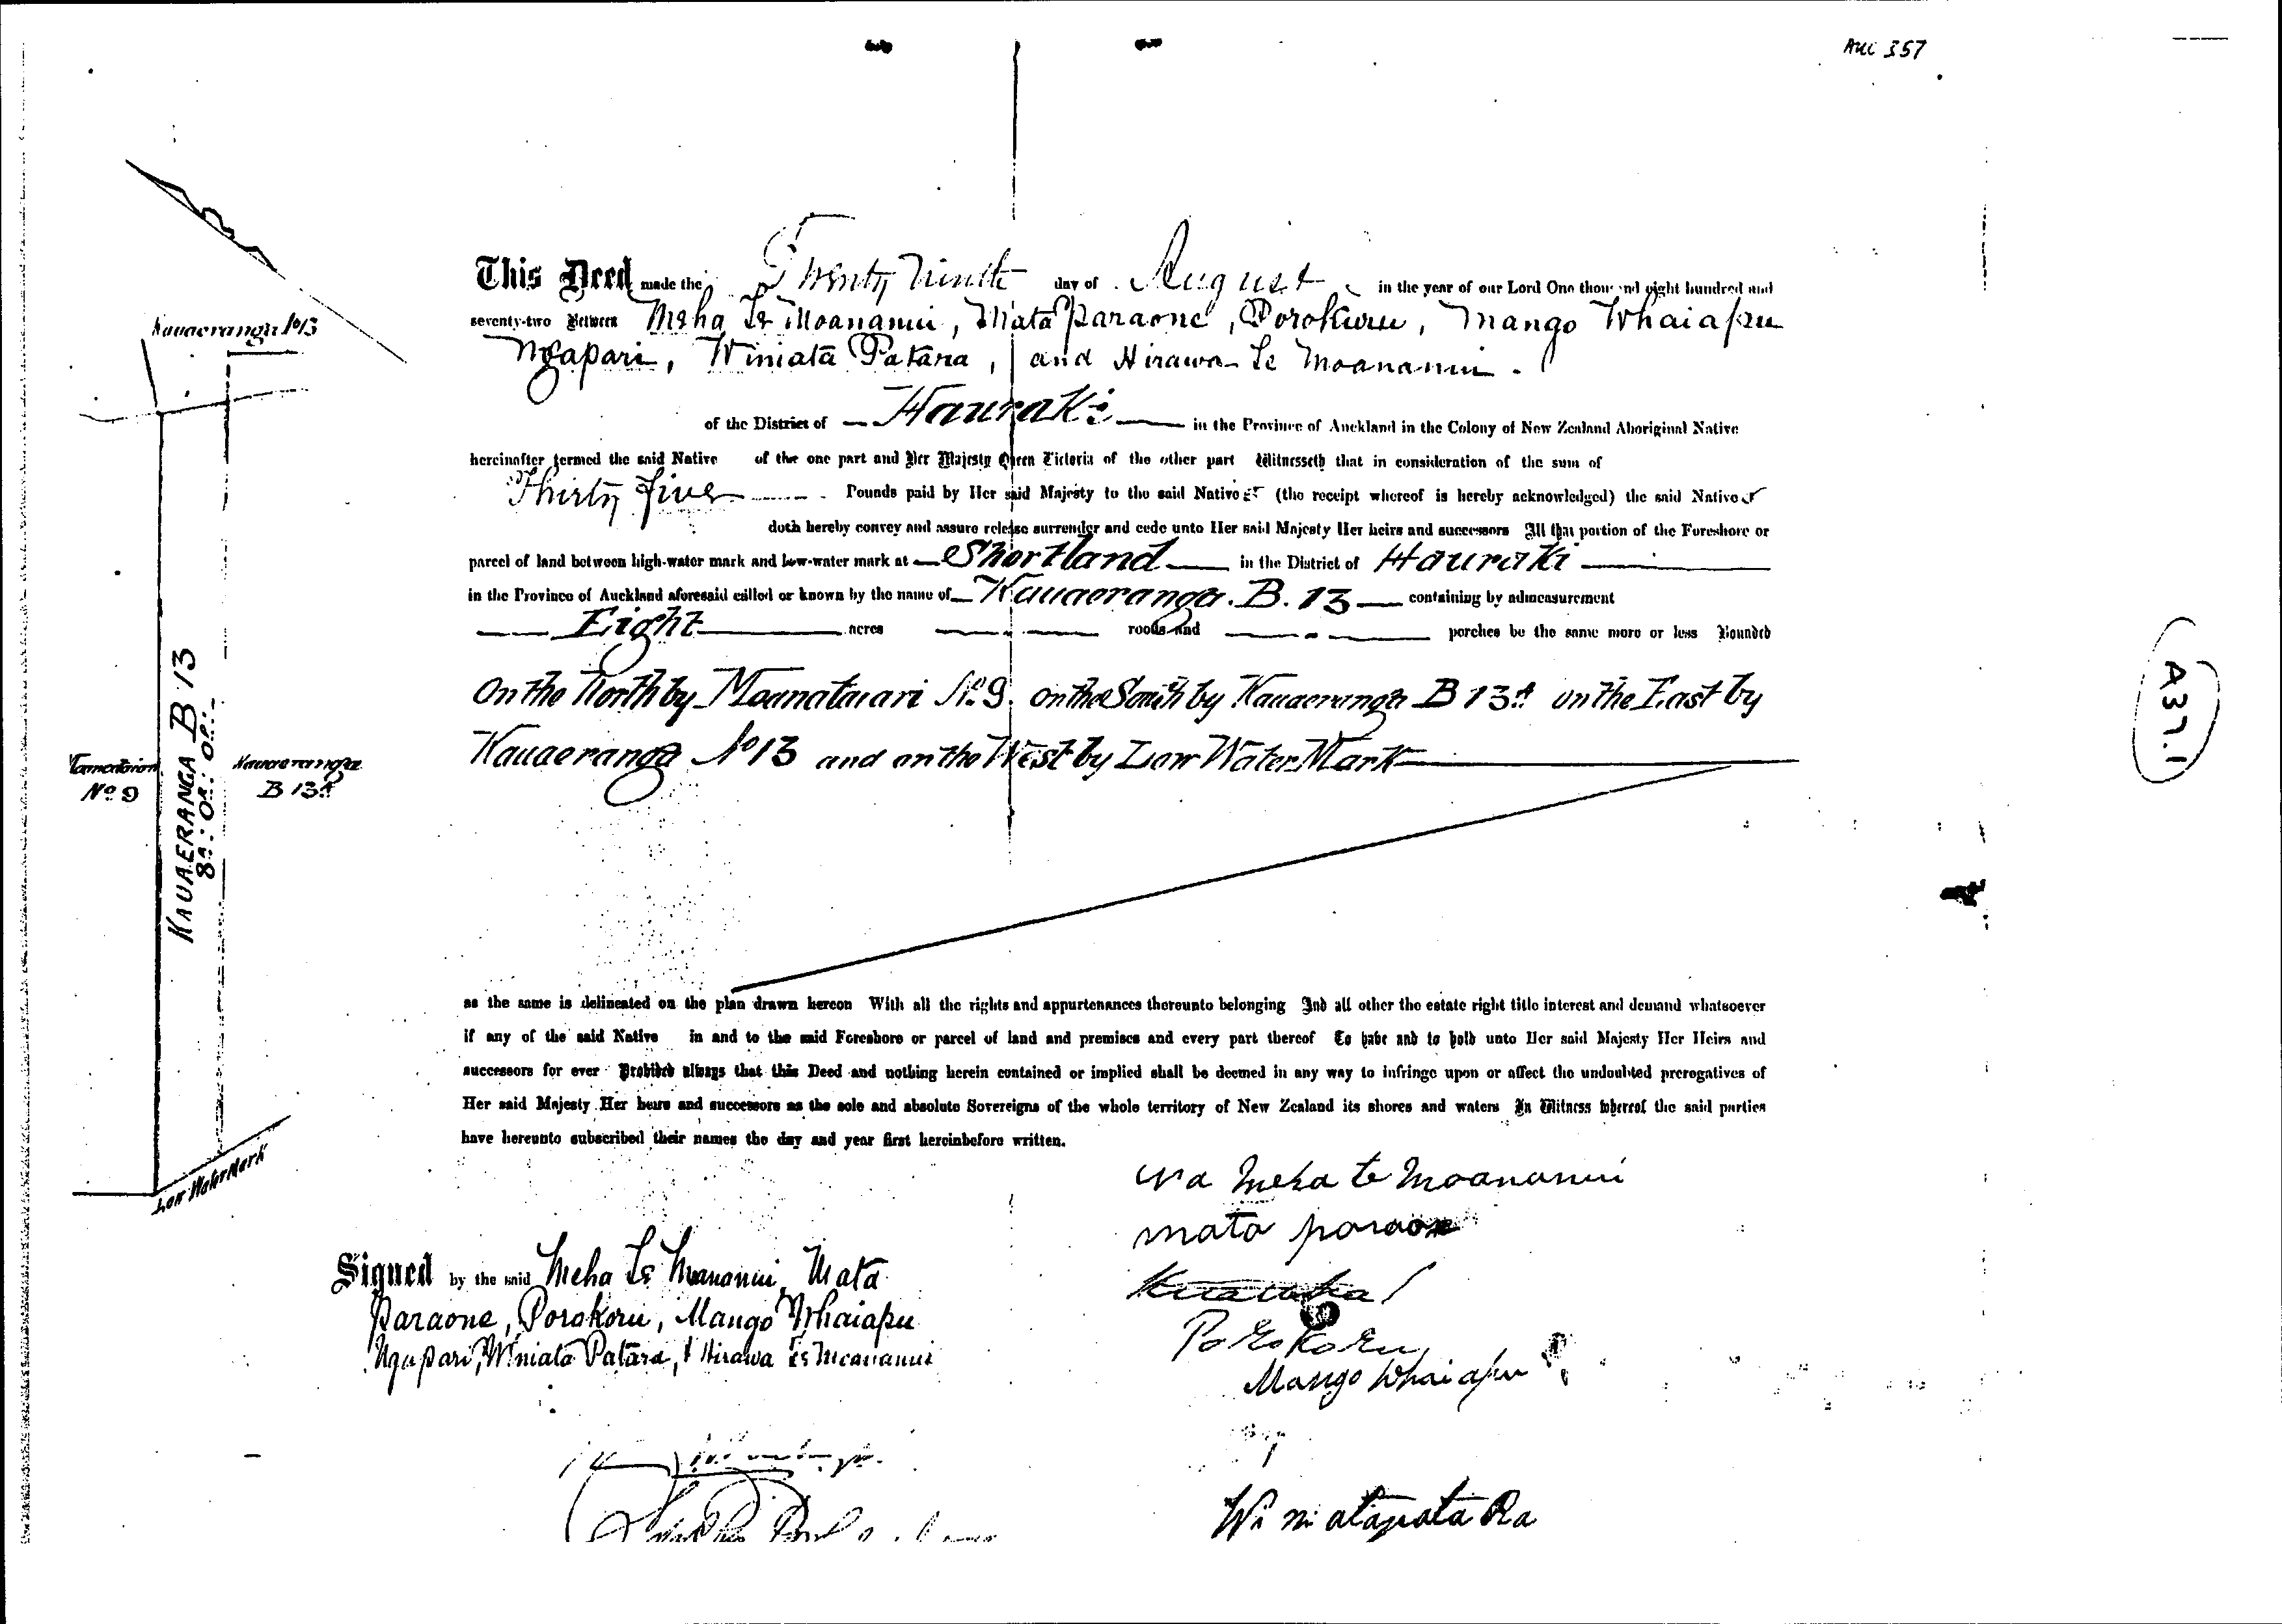 AUC 357
This Deed made the Twenty Ninth day of August in the year of our Lord One thousand eight hundred and
seventy-two Between Meha Te Moananui, Mata Paraone, Porokuru, Mango Whaiapu
Ngapari, Winiata Patara, and Hirawa Te Moananui.
of the District of Hauraki in the Province of Auckland in the Colony of New Zealand Aboriginal Native
hereinafter termed the said Native of the one part and Her Majesty Queen Victoria of the other part Witnesseth that in consideration of the sum of
Thirty five Pounds paid by Her said Majesty to the said Natives (the receipt whereof is hereby acknowledged) the said Natives
doth hereby convey and assure release surrender and cede unto Her said Majesty Her heirs and successors All that portion of the Foreshore or
parcel of land between high-water mark and low-water mark at Shortland in the District of Hauraki
in the Province of Auckland aforesaid called or known by the name of Kauaeranga. B. 13 containing by admeasurement
Eight acres roods and perches be the same more or less Bounded
On the North by Moanataiari No. 9. on the South by Kauaeranga B 13A on the East by
Kauaeranga No 13 and on the West by Low Water Mark
as the same is delineated on the plan drawn hereon With all the rights and appurtenances thereunto belonging And all other the estate right title interest and demand whatsoever
if any of the said Native in and to the said Foreshore or parcel of land and premises and every part thereof To have and to hold unto Her said Majesty Her Heirs and
successors for ever Provided always that this Deed and nothing herein contained or implied shall be deemed in any way to infringe upon or affect the undoubted prerogatives of
Her said Majesty Her heirs and successors as the sole and absolute Sovereigns of the whole territory of New Zealand its shores and waters In Witness whereof the said parties
have hereunto subscribed their names the day and year first hereinbefore written.
Na Meha te Moananui
mata paraone
Porokoru
Mango Whaiapu
Winiatapata Ra
Signed by the said Meha Te Moananui, Mata
Paraone, Porokoru, Mango Whaiapu
Ngapari, Winiata Patara, & Hirawa Te Moananui
Kauaeranga No 13
KAUAERANGA B 13
8A: 0R: 0P:
No. 9
Kauaeranga
B 13A
Low Water Mark
A37.1